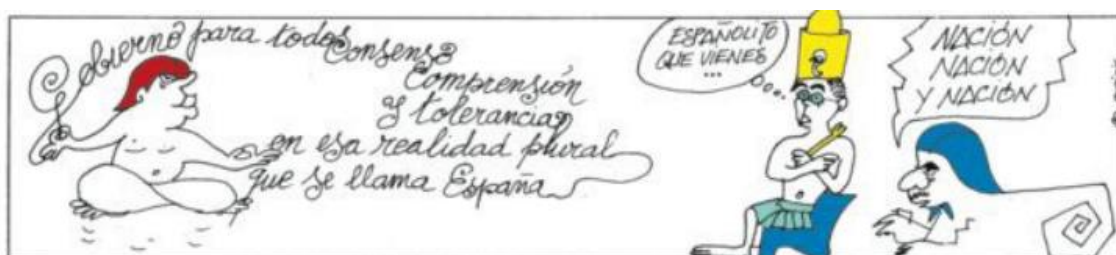 Gobierno para todos
Consenso
Comprensión
y tolerancia
en esa realidad plural
que se llama España
ESPAÑOLITO
QUE VIENES
...
NACIÓN
NACIÓN
Y NACIÓN